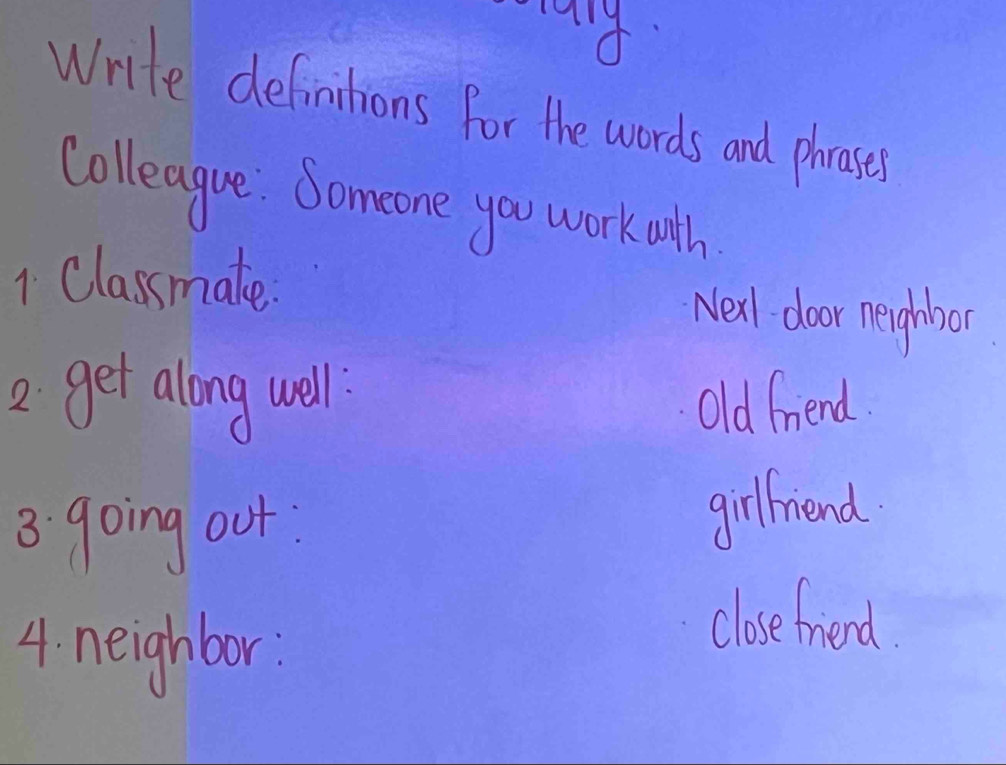 Write definitions for the words and phrases
Colleague: Someone you work with.
1. Classmate:
2. get along well:
3. going out:
4. neighbor:
Next-door neighbor
Old friend.
girlfriend.
close friend.